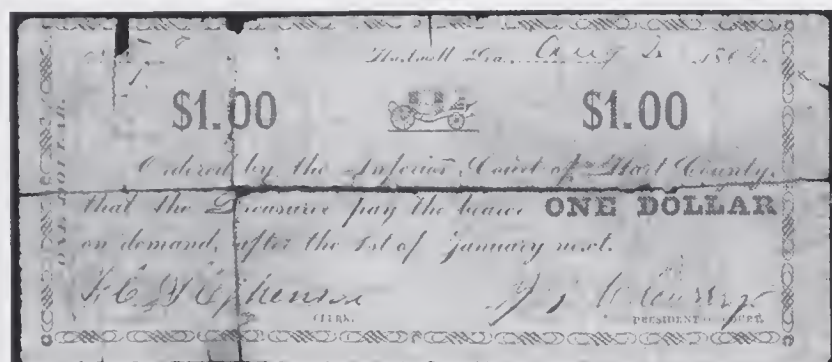 Hartwell Ga. Aug 2 186
$1.00 $1.00
Ordered by the Inferior Court of Hart County,
that the Treasurer pay the bearer ONE DOLLAR
on demand, after the 1st of January next.
CLERK. PRESIDENT COURT.
ONE DOLLAR